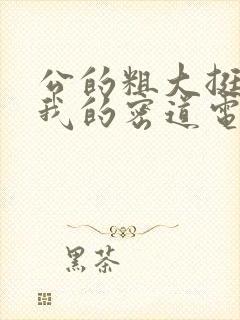 公的粗大挺
我的密道电
黑茶